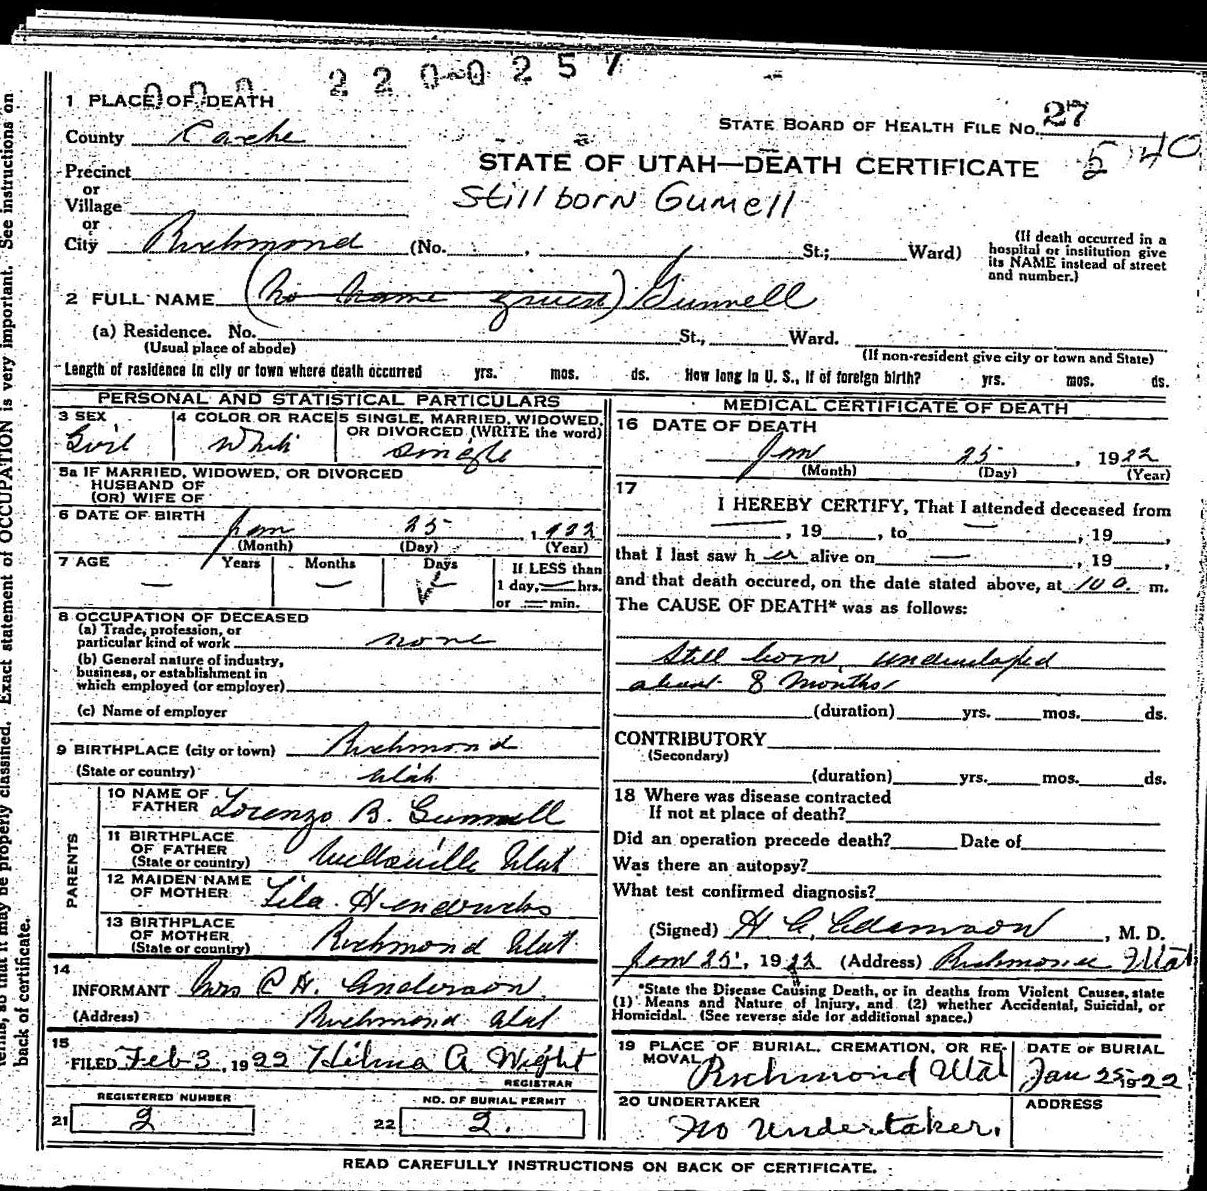 000 220-0257
1 PLACE OF DEATH
STATE BOARD OF HEALTH FILE No. 27
County Cache
STATE OF UTAH—DEATH CERTIFICATE 540
Precinct
or
Stillborn Gunnell
Village
or
City Richmond (No. , St.; Ward)
(If death occurred in a
hospital or institution give
its NAME instead of street
and number.)
2 FULL NAME (no name given) Gunnell
(a) Residence. No. St., Ward.
(Usual place of abode)
(If non-resident give city or town and State)
Length of residence in city or town where death occurred yrs. mos. ds. How long in U. S., if of foreign birth? yrs. mos. ds.
PERSONAL AND STATISTICAL PARTICULARS
3 SEX
4 COLOR OR RACE
5 SINGLE, MARRIED, WIDOWED,
OR DIVORCED (WRITE the word)
Girl
White
single
5a IF MARRIED, WIDOWED, OR DIVORCED
HUSBAND OF
(OR) WIFE OF
6 DATE OF BIRTH
Jan 25 , 1922
(Month) (Day) (Year)
7 AGE Years Months Days
If LESS than
1 day, — hrs.
or — min.
8 OCCUPATION OF DECEASED
(a) Trade, profession, or
particular kind of work none
(b) General nature of industry,
business, or establishment in
which employed (or employer)
(c) Name of employer
9 BIRTHPLACE (city or town) Richmond
(State or country) Utah
PARENTS
10 NAME OF
FATHER Lorenzo B. Gunnell
11 BIRTHPLACE
OF FATHER
(State or country) Wellsville Utah
12 MAIDEN NAME
OF MOTHER Lila Hendricks
13 BIRTHPLACE
OF MOTHER
(State or country) Richmond Utah
14
INFORMANT Mrs C H. Anderson
(Address) Richmond Utah
15
FILED Feb-3, 1922 Hilma A Wight
REGISTRAR
REGISTERED NUMBER
21 2
NO. OF BURIAL PERMIT
22 2.
MEDICAL CERTIFICATE OF DEATH
16 DATE OF DEATH
Jan 25 , 1922
(Month) (Day) (Year)
17
I HEREBY CERTIFY, That I attended deceased from
— , 19 , to — , 19 ,
that I last saw h er alive on — , 19 ,
and that death occured, on the date stated above, at 10 a. m.
The CAUSE OF DEATH* was as follows:
Still born, undeveloped
about 8 months
(duration) yrs. mos. ds.
CONTRIBUTORY
(Secondary)
(duration) yrs. mos. ds.
18 Where was disease contracted
If not at place of death?
Did an operation precede death? Date of
Was there an autopsy?
What test confirmed diagnosis?
(Signed) H C, Adamson , M. D.
Jan 25, 1922 (Address) Richmond Utah
*State the Disease Causing Death, or in deaths from Violent Causes, state
(1) Means and Nature of Injury, and (2) whether Accidental, Suicidal, or
Homicidal. (See reverse side for additional space.)
19 PLACE OF BURIAL, CREMATION, OR RE-
MOVAL Richmond Utah
DATE OF BURIAL
Jan 25 1922
20 UNDERTAKER
No Undertaker.
ADDRESS
READ CAREFULLY INSTRUCTIONS ON BACK OF CERTIFICATE.
so that it may be properly classified. Exact statement of OCCUPATION is very important. See instructions on
back of certificate.